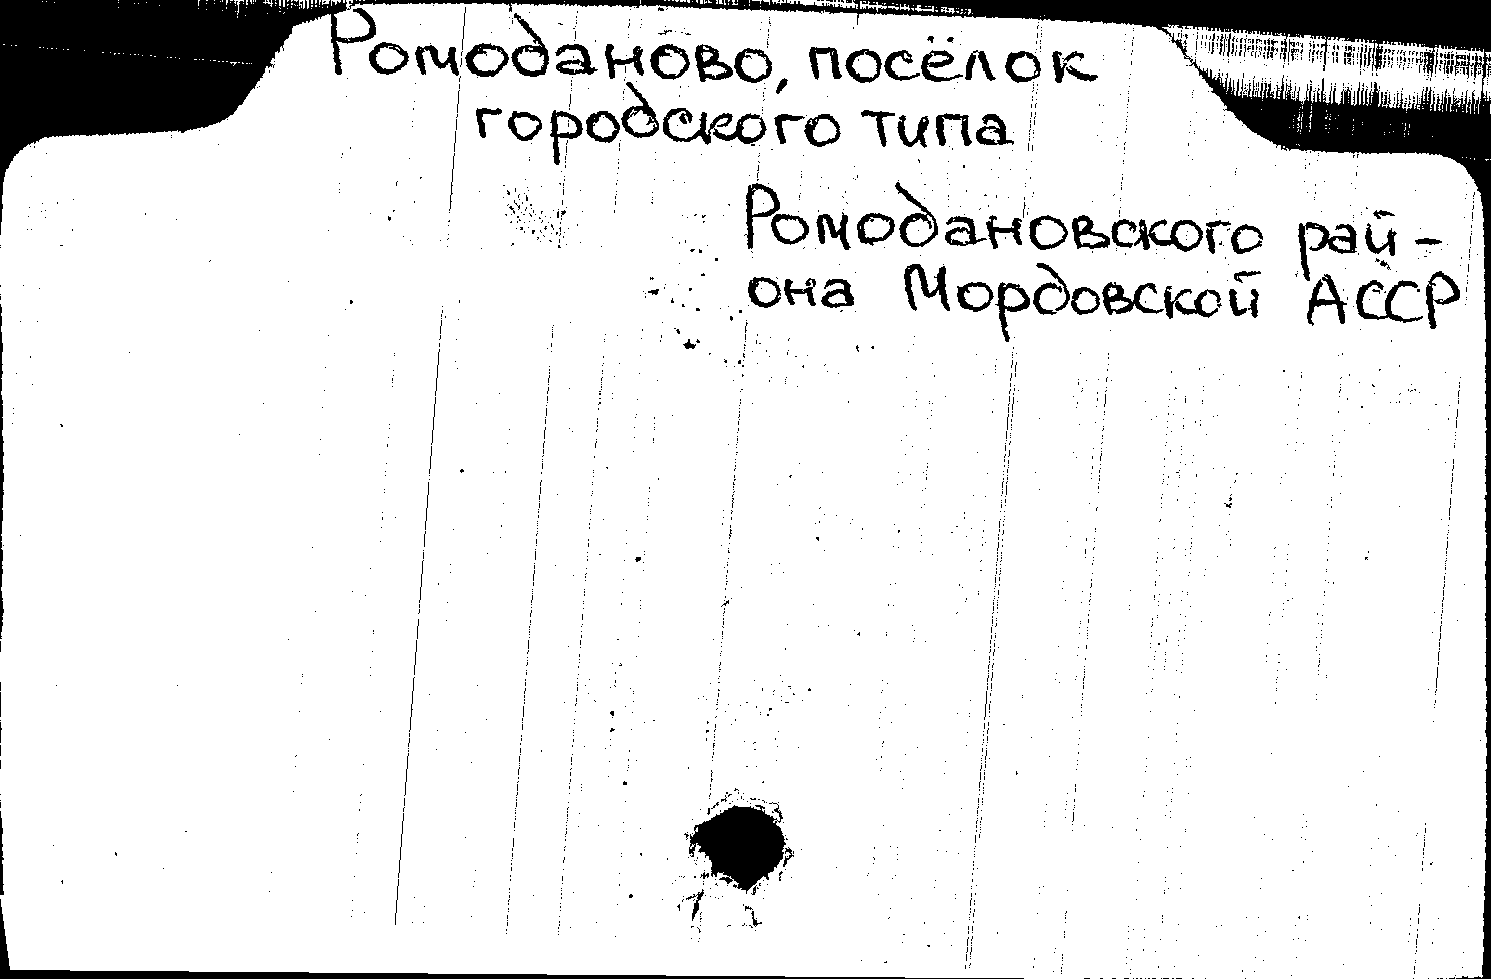 Ромоданово, посёлок
городского типа
Ромодановского рай-
она Мордовской АССР